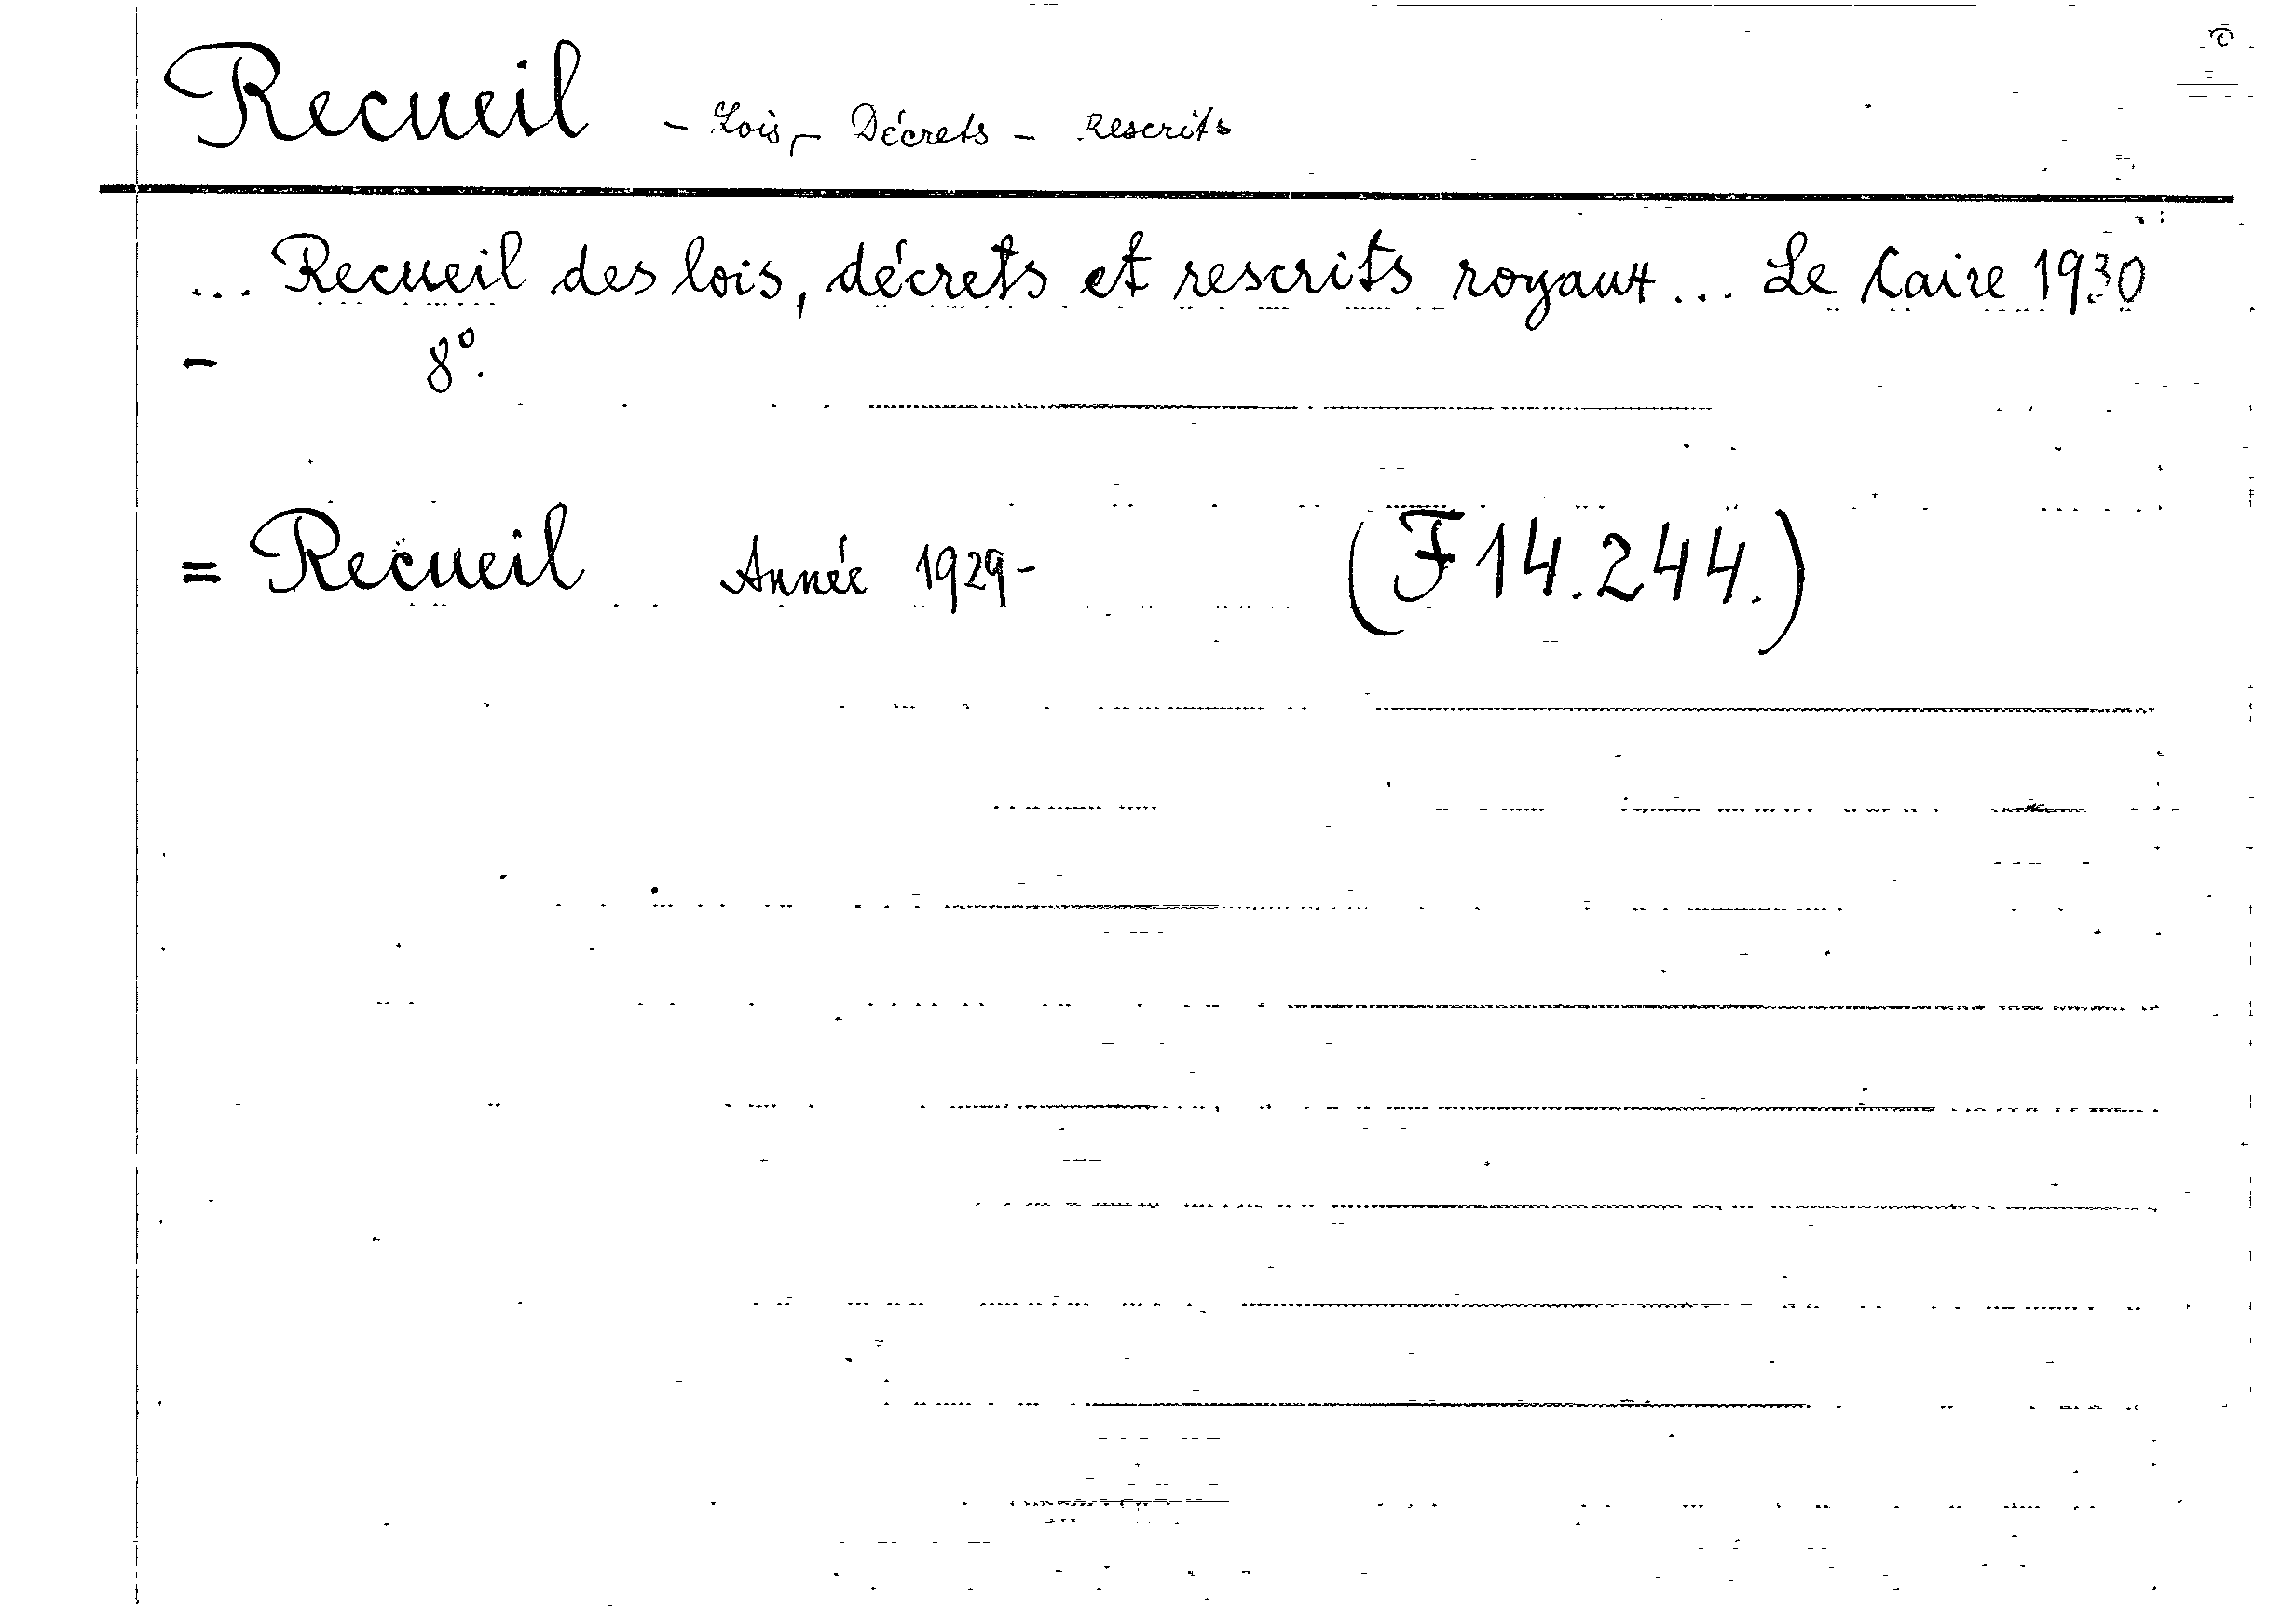 Recueil - Lois, - Décrets - Rescrits
... Recueil des lois, décrets et rescrits royaux... Le Caire 1930
- 8°.
= Recueil Année 1929- (F14.244.)